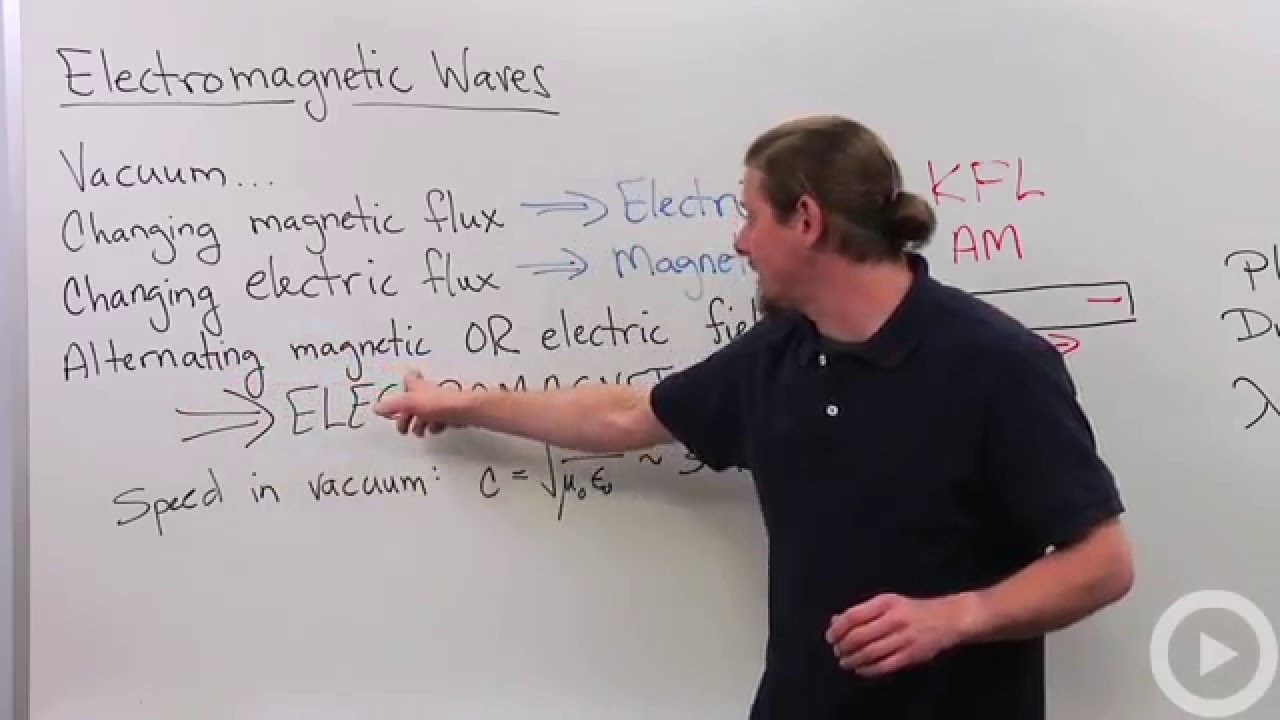 Electromagnetic Waves
Vacuum...
Changing magnetic flux ⇒
Changing electric flux ⇒
Alternating magnetic OR electric
⇒
Speed in vacuum: c = √ μ₀ ε₀ ~ 3
KFL
AM
−
λ